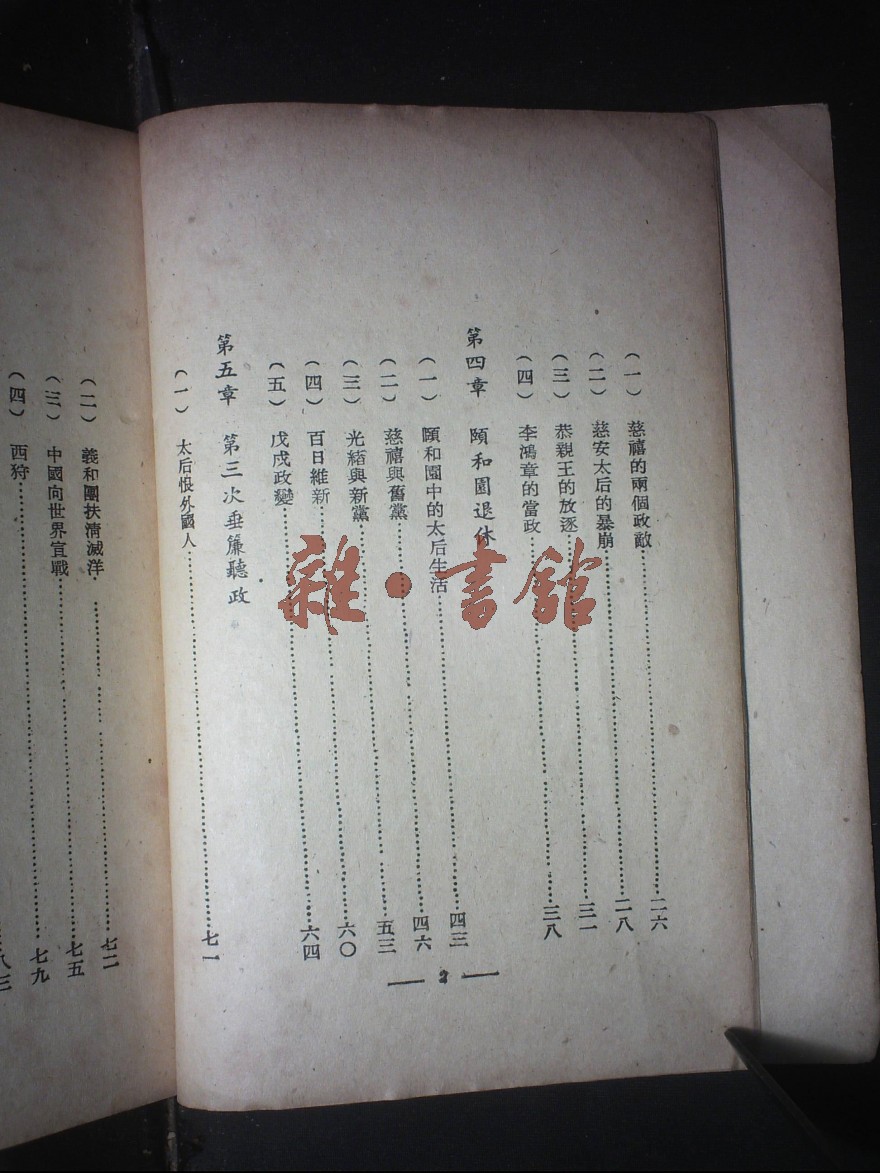 (一) 慈禧的兩個政敵……二六
(二) 慈安太后的暴崩……二八
(三) 恭親王的放逐……三一
(四) 李鴻章的當政……三八
第四章 頤和園退休
(一) 頤和園中的太后生活……四三
(二) 慈禧與舊黨……四六
(三) 光緒與新黨……五三
(四) 百日維新……六〇
(五) 戊戌政變……六四
第五章 第三次垂簾聽政
(一) 太后恨外國人……七一
— 2 —
(二) 義和團扶清滅洋……七二
(三) 中國向世界宣戰……七五
(四) 西狩……七九
八三
雜·書館